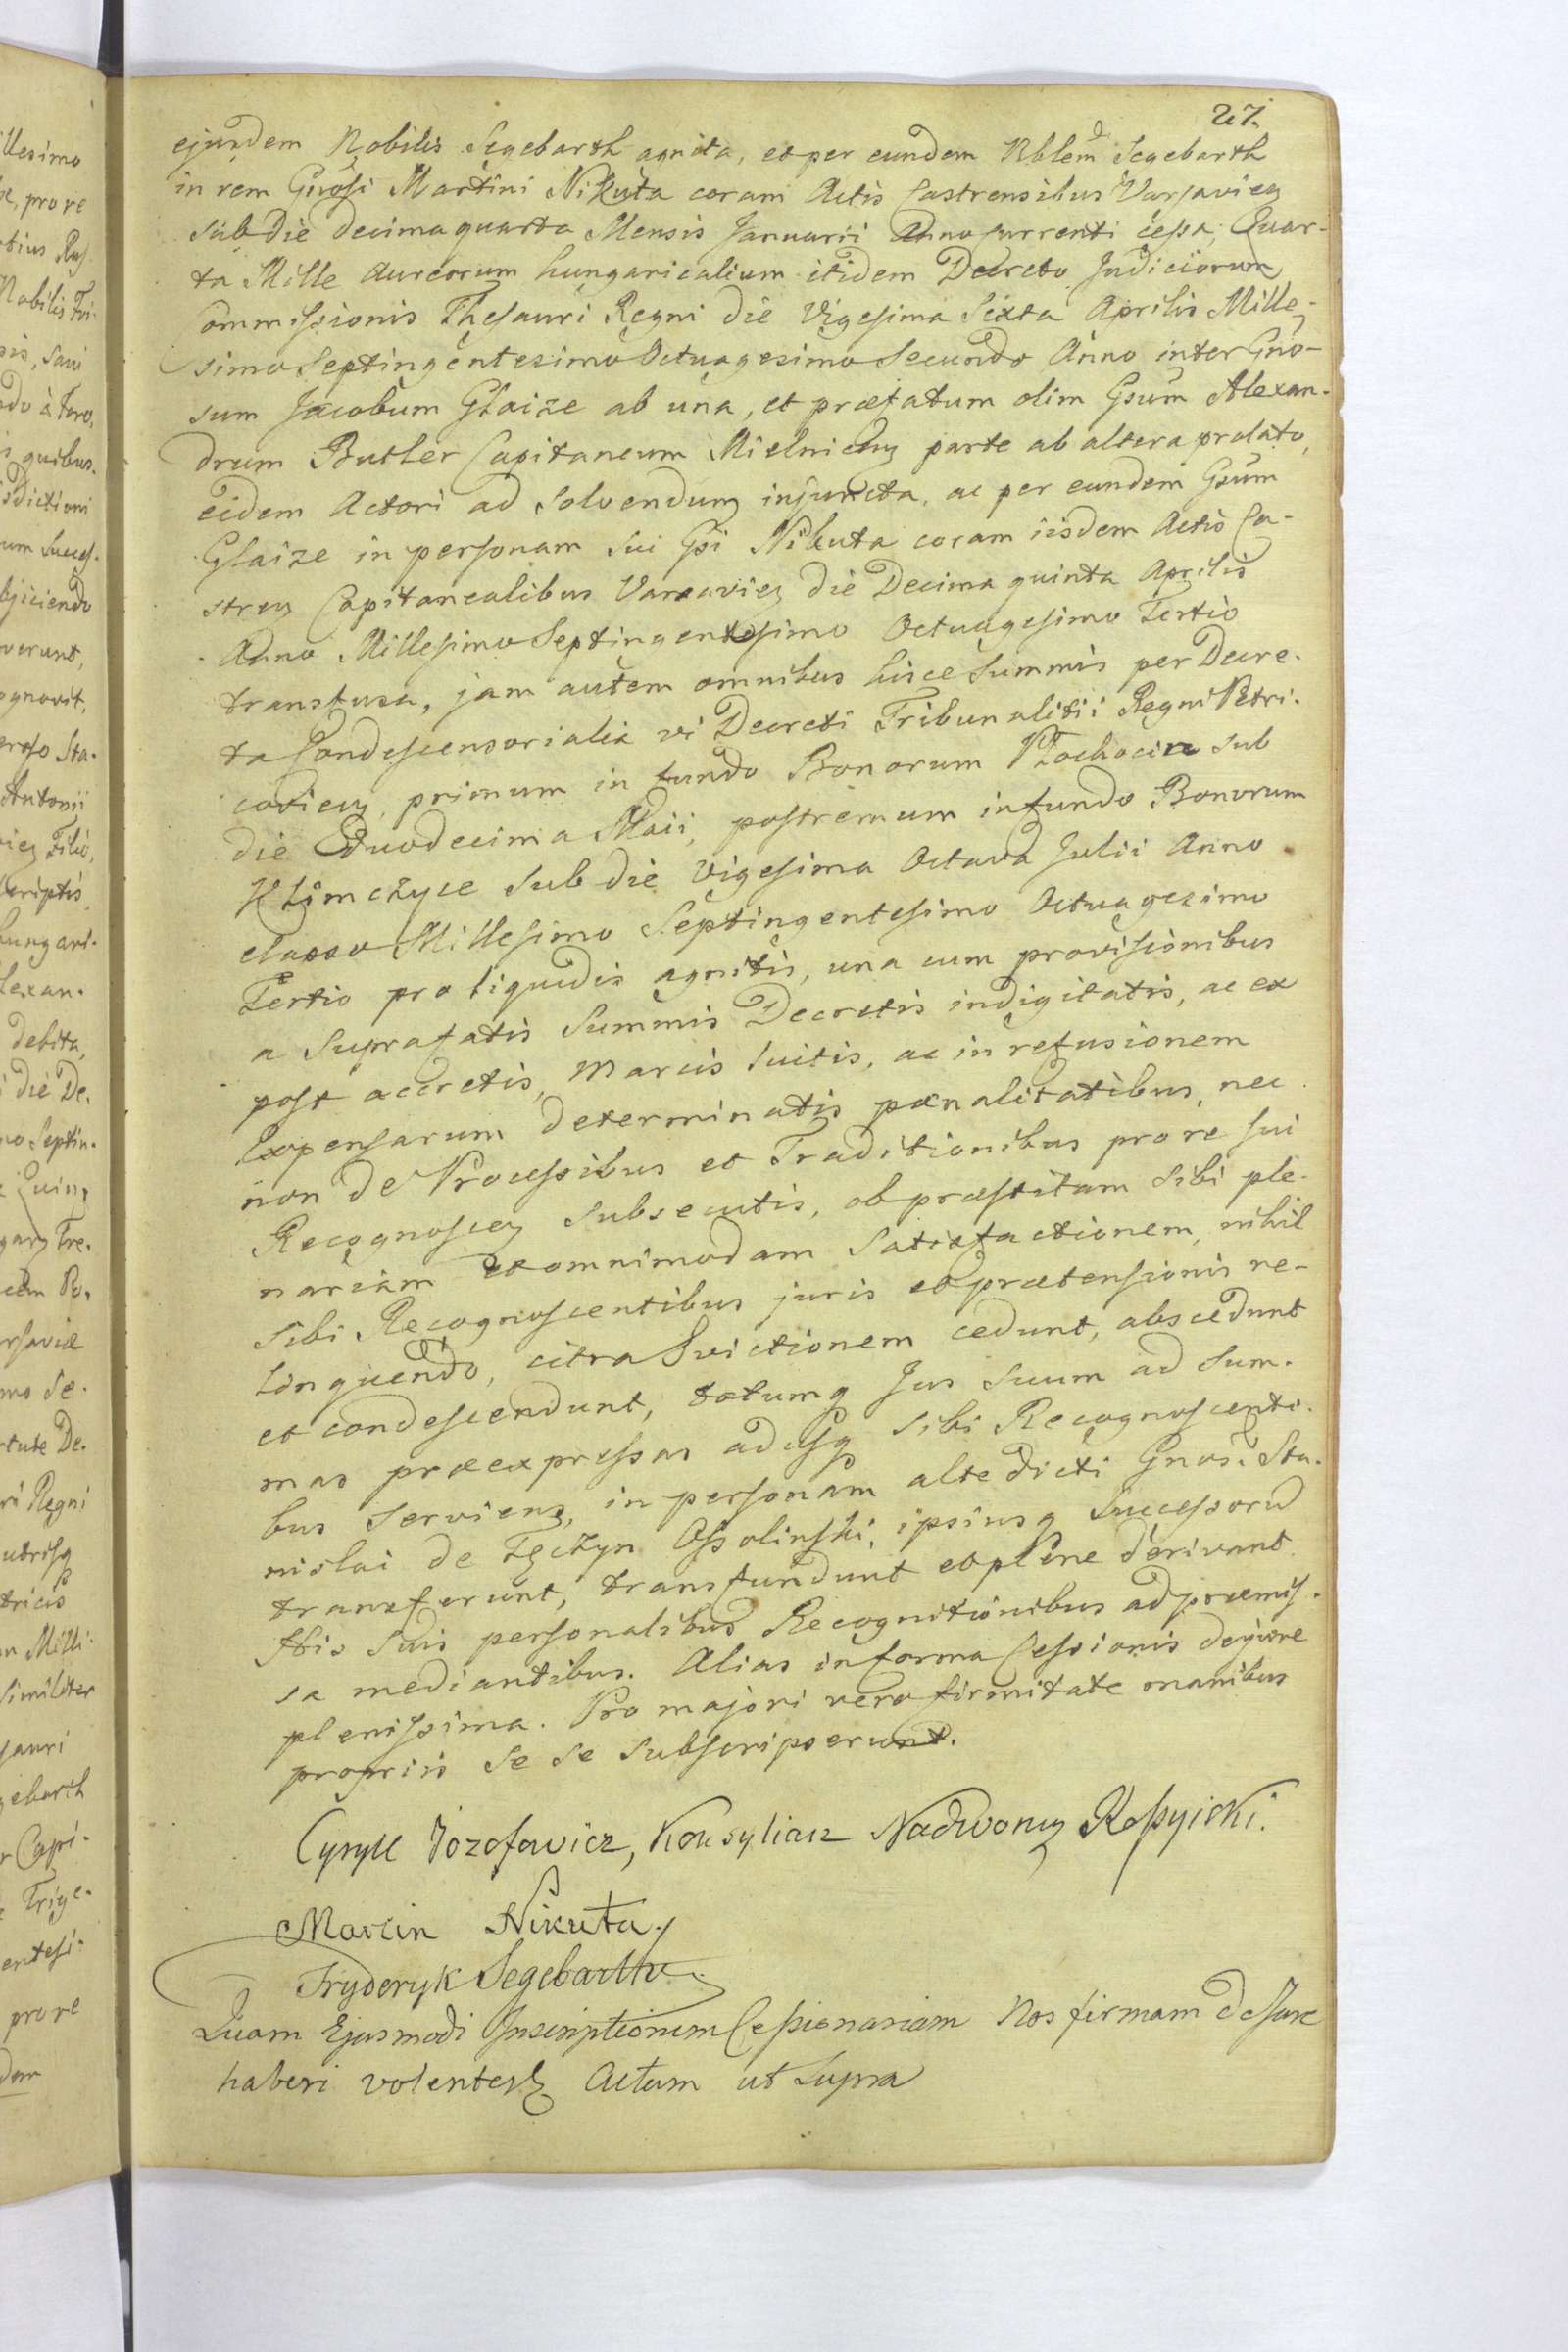 27.
ejusdem Nobilis Segebarth agnita, et per eundem Nblem Segebarth
in rem Gnosi Martini Nikuta coram Actis Castrensibus Varsavien
sub Die decima quarta Mensis Januarii Anno currenti cessa, Quar-
ta Mille Aureorum hungaricalium itidem Decreto Judiciorum
Commissionis Thesauri Regni die Vigesima Sexta Aprilis Mille-
simo Septingentesimo Octuagesimo Secundo Anno inter Gno-
sum Jacobum Glaize ab una, et præfatum olim Gsum Alexan-
drum Butler Capitaneum Mielnicen parte ab altera prolato,
eidem Actori ad Solvendum injuncta, ac per eundem Gsum
Glaize in personam sui Gsi Nikuta coram iisdem Actis Ca-
stren Capitanealibus Varsavien die Decima quinta Aprilis
Anno Millesimo Septingentesimo Octuagesimo Tertio
transfusa, jam autem omnibus hisce Summis per Decre-
ta Condescensorialia vi Decreti Tribunalitii Regni Petri-
covien, primum in fundo Bonorum Płochocin sub
die Duodecima Maii, postremum in fundo Bonorum
Klimczyce sub die Vigesima Octava Julii Anno
elapso Millesimo Septingentesimo Octuagesimo
Tertio pro liquidis agnitis, una cum provisionibus
a Suprafatis Summis Decretis indigitatis, ac ex
post accretis, Marcis luitis, ac in refusionem
Expensarum determinatis pænalitatibus, nec
non de Processibus et Traditionibus pro re sui
Recognoscen subsecutis, ob præstitam Sibi ple-
nariam et omnimodam Satisfactionem, nihil
sibi Recognoscentibus juris et prætensionis re-
linquendo, citra Evictionem cedunt, abscedunt
et condescendunt, totumq Jus Suum ad Sum-
mas præexpressas adusq sibi Recognoscenti-
bus Serviens, in personam alte dicti Gnosi Sta-
nislai de Tęczyn Ossolinski, ipsiusq Successorum
transferunt, transfundunt et plene derivant
His Suis personalibus Recognitionibus ad præmis-
sa mediantibus. Alias in forma Cessionis de jure
plenissima. Pro majori vero firmitate manibus
propriis se se subscripserunt.
Cyryll Jozofowicz, Konsyliarz Nadworny Rossyiski.
Marcin Nikuta
Fryderyk Segebarth
Quam Ejusmodi Inscriptionem Cessionariam Nos firmam de Jure
haberi volentes Actum ut Supra